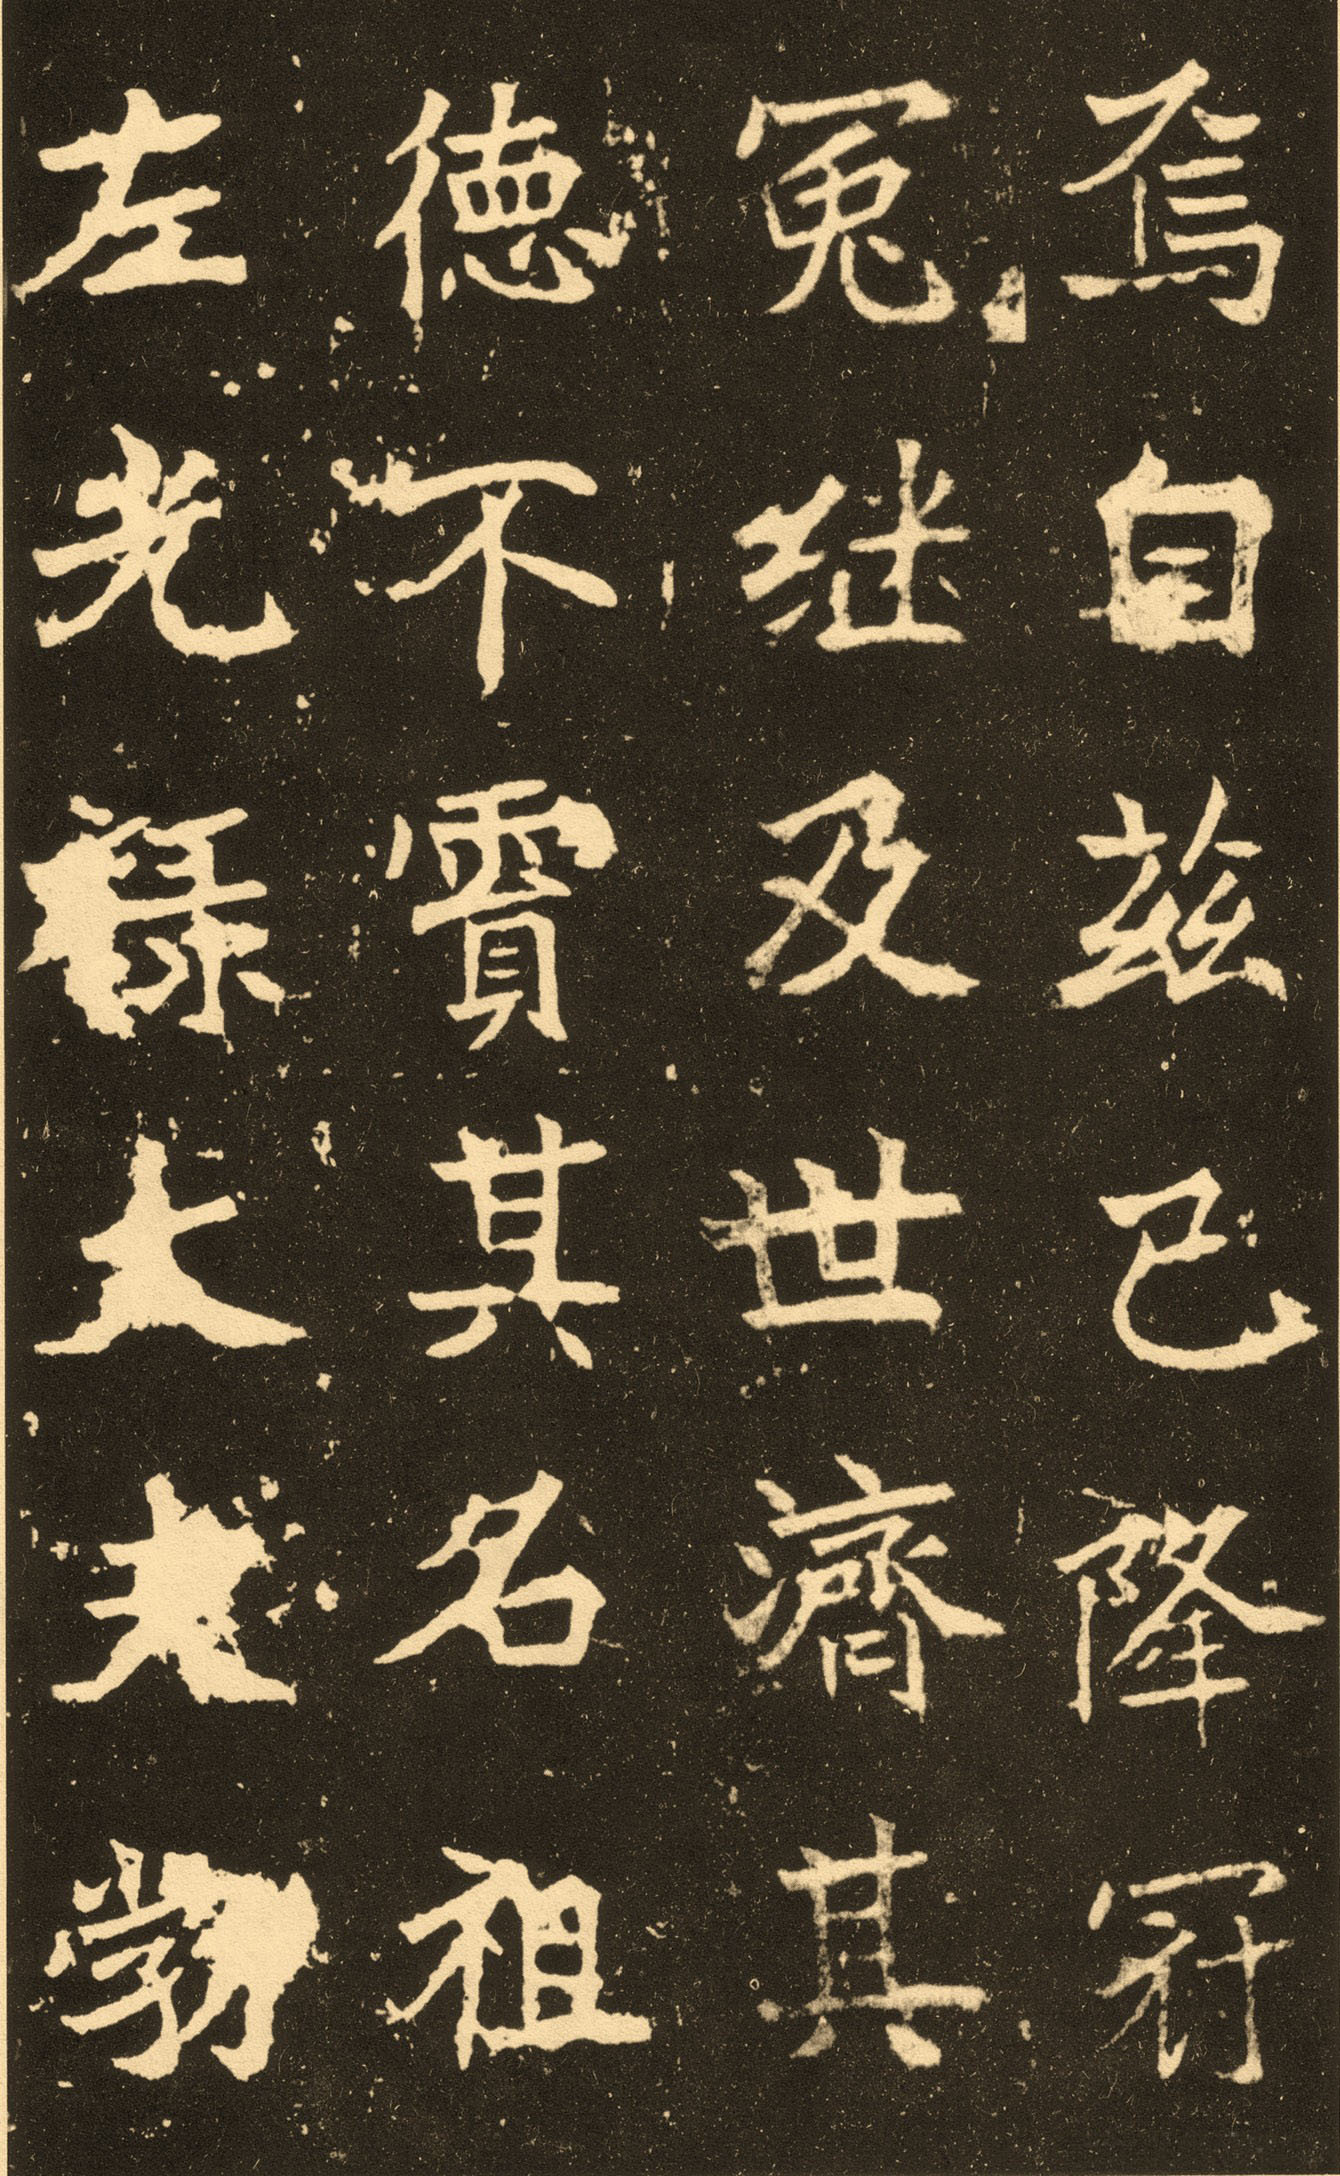 焉自兹已降冠
冕继及世濟其
德不賈其名祖
左光禄大夫勃